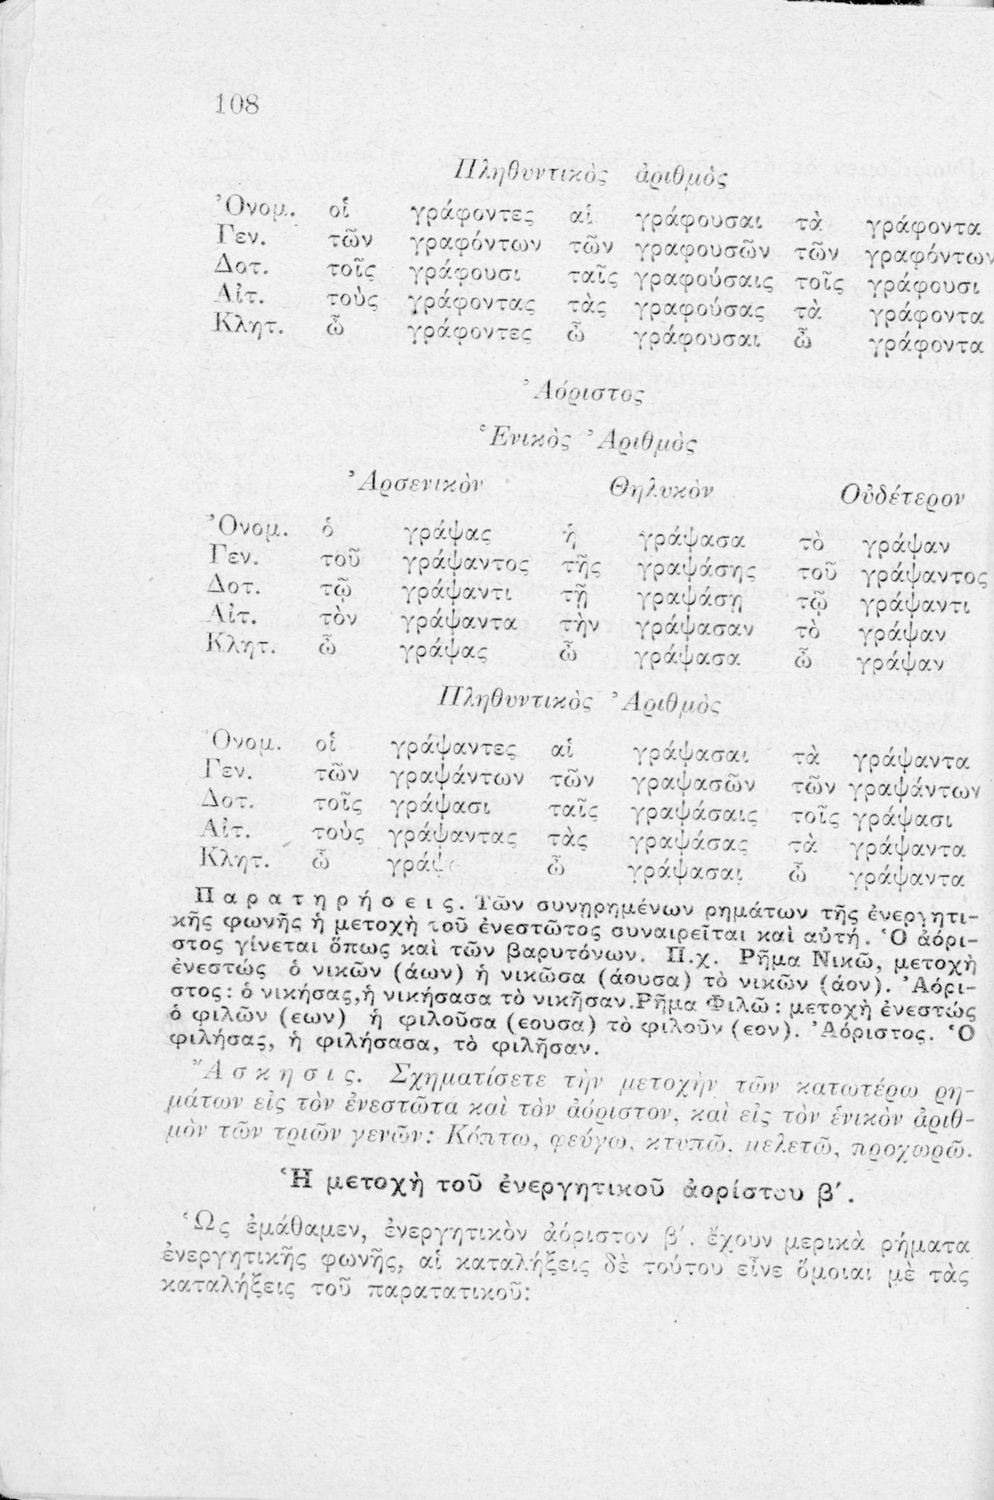 108
Πληθυντικὸς ἀριθμὸς
Ὀνομ. οἱ γράφοντες αἱ γράφουσαι τὰ γράφοντα
Γεν. τῶν γραφόντων τῶν γραφουσῶν τῶν γραφόντων
Δοτ. τοῖς γράφουσι ταῖς γραφούσαις τοῖς γράφουσι
Αἰτ. τοὺς γράφοντας τὰς γραφούσας τὰ γράφοντα
Κλητ. ὦ γράφοντες ὦ γράφουσαι ὦ γράφοντα
Ἀόριστος
Ἑνικὸς Ἀριθμὸς
Ἀρσενικὸν Θηλυκὸν Οὐδέτερον
Ὀνομ. ὁ γράψας ἡ γράψασα τὸ γράψαν
Γεν. τοῦ γράψαντος τῆς γραψάσης τοῦ γράψαντος
Δοτ. τῷ γράψαντι τῇ γραψάσῃ τῷ γράψαντι
Αἰτ. τὸν γράψαντα τὴν γράψασαν τὸ γράψαν
Κλητ. ὦ γράψας ὦ γράψασα ὦ γράψαν
Πληθυντικὸς Ἀριθμὸς
Ὀνομ. οἱ γράψαντες αἱ γράψασαι τὰ γράψαντα
Γεν. τῶν γραψάντων τῶν γραψασῶν τῶν γραψάντων
Δοτ. τοῖς γράψασι ταῖς γραψάσαις τοῖς γράψασι
Αἰτ. τοὺς γράψαντας τὰς γραψάσας τὰ γράψαντα
Κλητ. ὦ ὦ γράψασαι ὦ γράψαντα
Παρατηρήσεις. Τῶν συνῃρημένων ρημάτων τῆς ἐνεργητι-
κῆς φωνῆς ἡ μετοχὴ τοῦ ἐνεστῶτος συναιρεῖται καὶ αὐτή. Ὁ ἀόρι-
στος γίνεται ὅπως καὶ τῶν βαρυτόνων. Π.χ. Ρῆμα Νικῶ, μετοχὴ
ἐνεστώς ὁ νικῶν (άων) ἡ νικῶσα (άουσα) τὸ νικῶν (άον). Ἀόρι-
στος: ὁ νικήσας, ἡ νικήσασα τὸ νικῆσαν. Ρῆμα Φιλῶ: μετοχὴ ἐνεστώς
ὁ φιλῶν (εων) ἡ φιλοῦσα (εουσα) τὸ φιλοῦν (εον). Ἀόριστος. Ὁ
φιλήσας, ἡ φιλήσασα, τὸ φιλῆσαν.
Ἄσκησις. Σχηματίσετε τὴν μετοχὴν τῶν κατωτέρω ρη-
μάτων εἰς τὸν ἐνεστῶτα καὶ τὸν ἀόριστον, καὶ εἰς τὸν ἑνικὸν ἀριθ-
μὸν τῶν τριῶν γενῶν: Κόπτω, φεύγω, κτυπῶ, μελετῶ, προχωρῶ.
Ἡ μετοχὴ τοῦ ἐνεργητικοῦ ἀορίστου β΄.
Ὡς ἐμάθαμεν, ἐνεργητικὸν ἀόριστον β΄. ἔχουν μερικὰ ρήματα
ἐνεργητικῆς φωνῆς, αἱ καταλήξεις δὲ τούτου εἶνε ὅμοιαι μὲ τὰς
καταλήξεις τοῦ παρατατικοῦ: